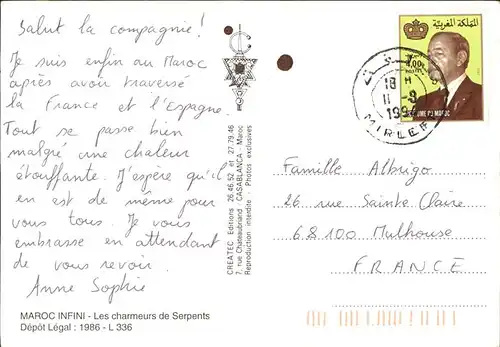 Salut la compagnie!
Je suis enfin au Maroc
après avoir traversé
la France et l'Espagne.
Tout se passe bien
malgré une chaleur
étouffante. J'espère qu'il
en est de même pour
vous tous. Je vous
embrasse en attendant
de vous revoir.
Anne Sophie
MAROC INFINI - Les charmeurs de Serpents
Dépôt Légal : 1986 - L 336
CREATEC Editions 26.46.52 et 27.79.46
7, rue Chateaubriand - CASABLANCA - Maroc
Reproduction interdite - Photos exclusives
المملكة المغربية
4,00
ROYAUME DU MAROC
18 H
11 -9
MIRLEFT
Famille Albrigo
26 rue Sainte Claire
68100 Mulhouse
FRANCE